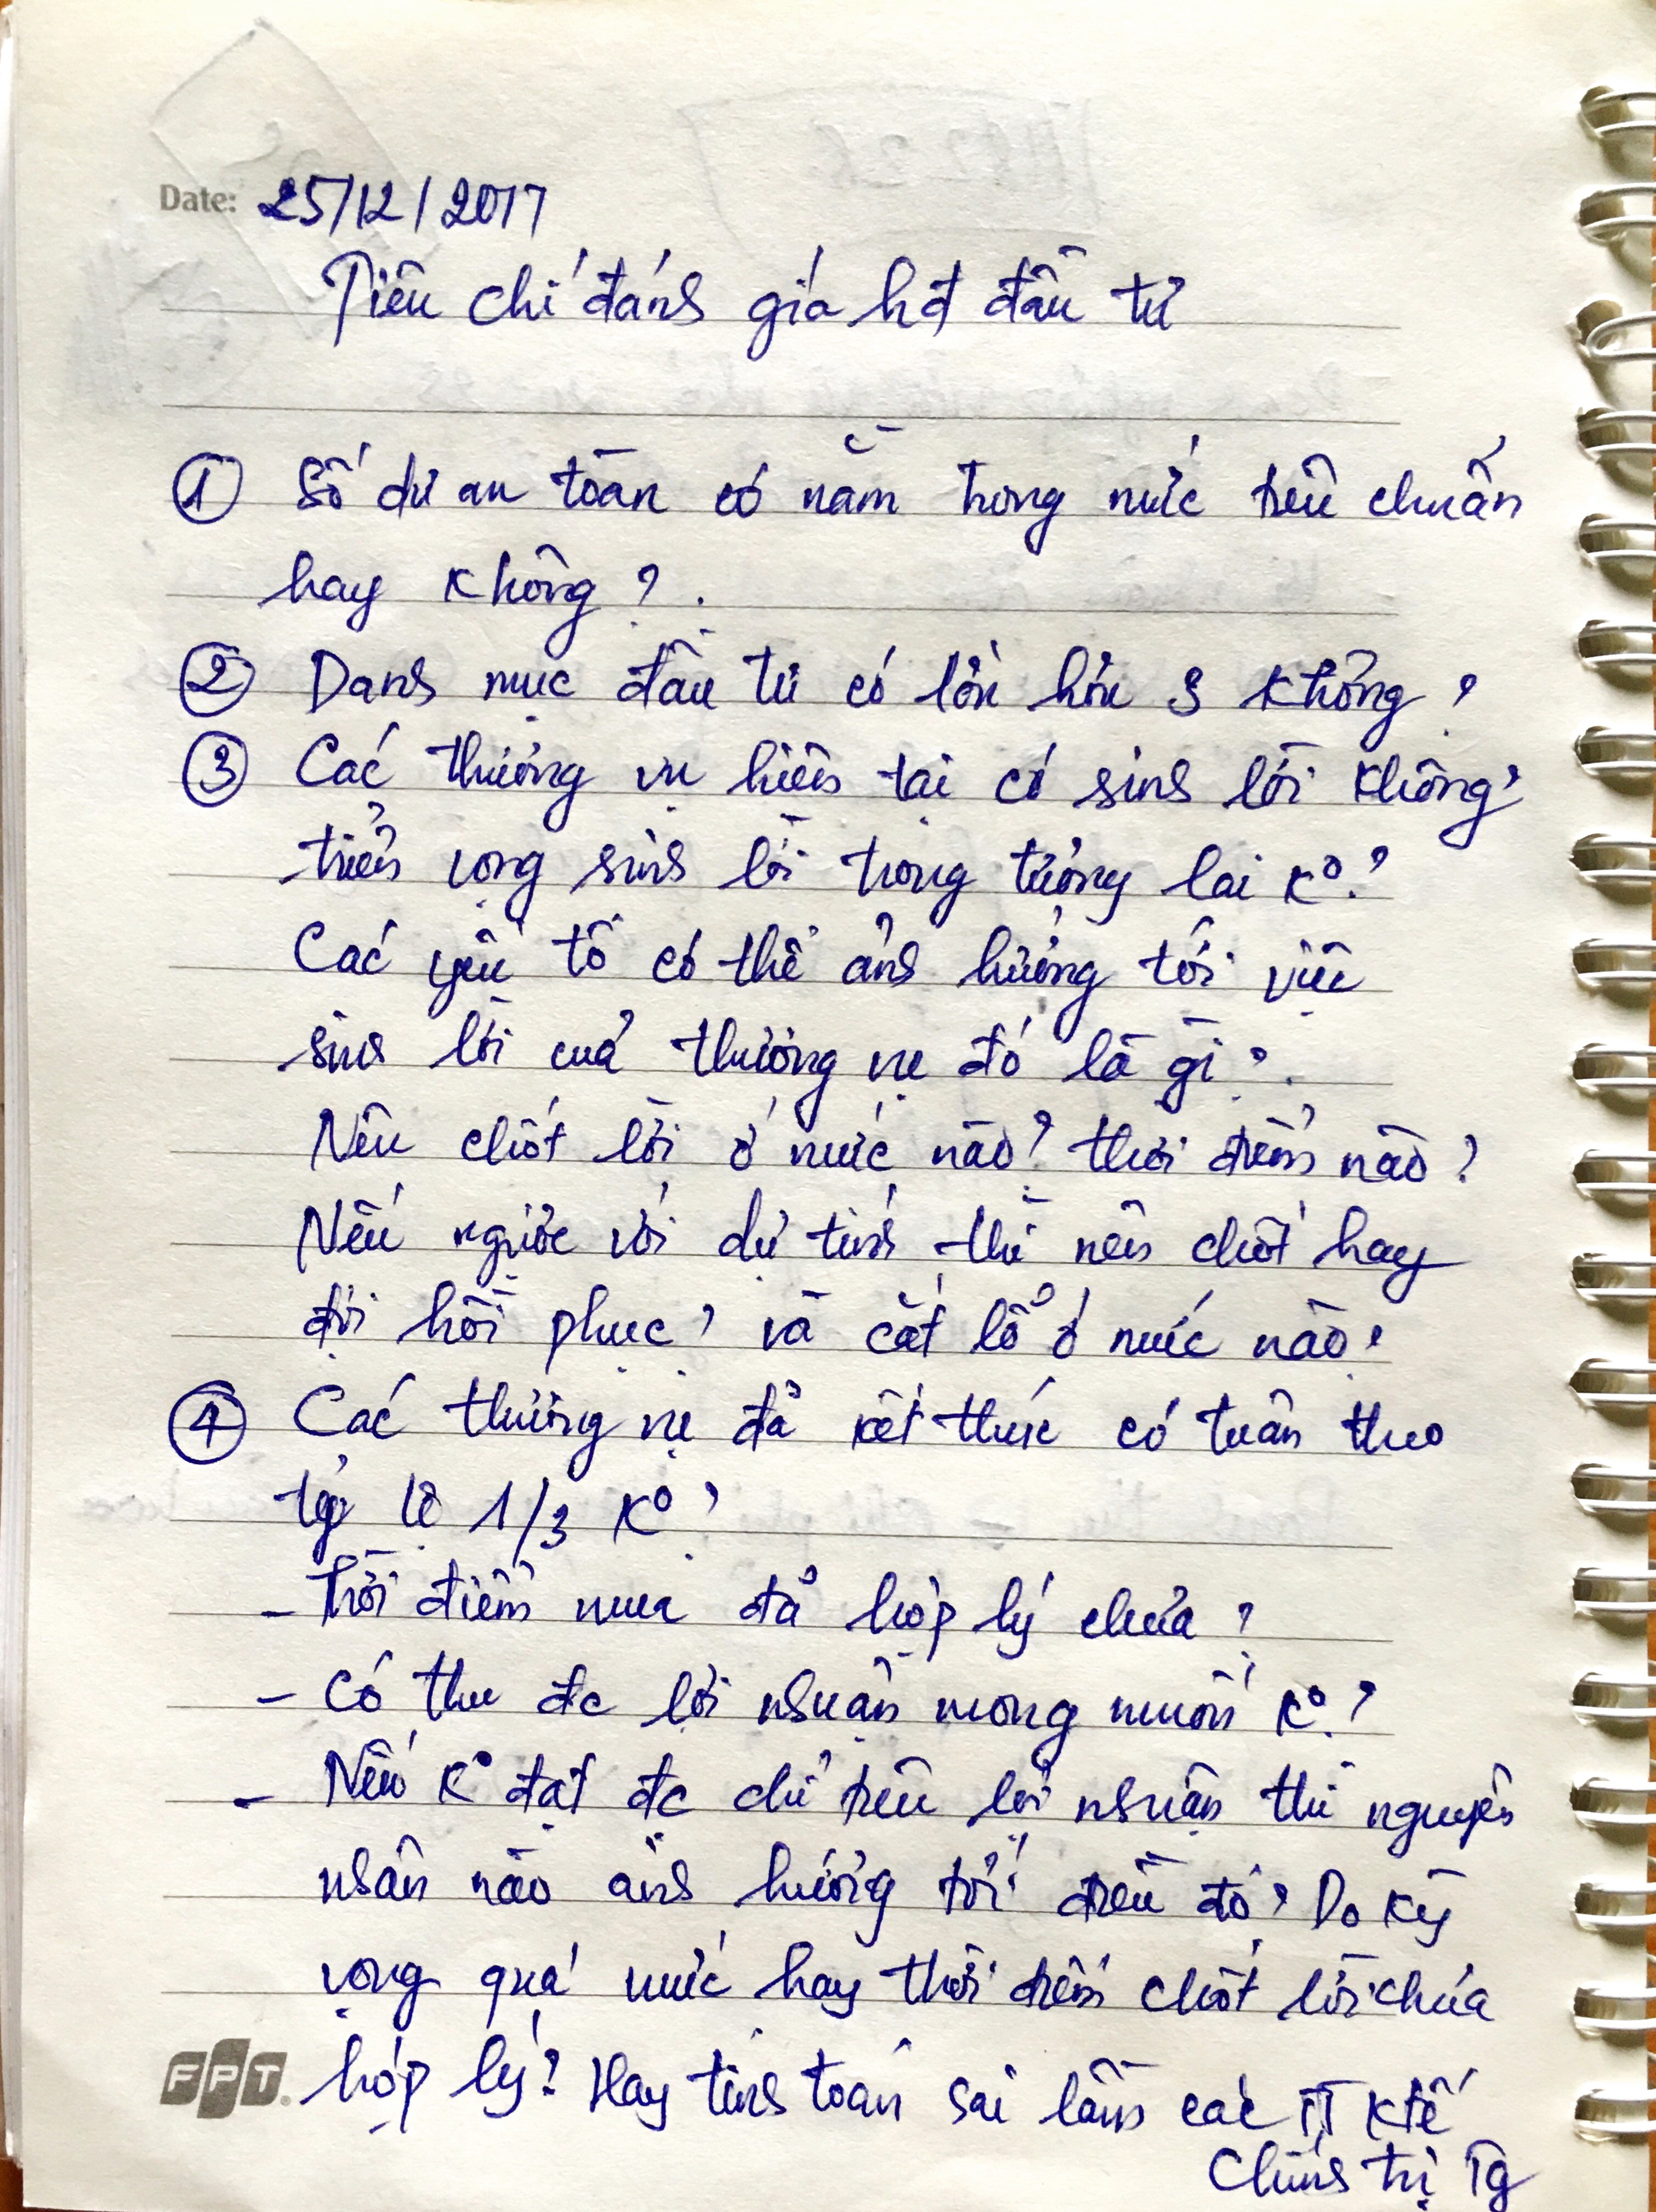 Date: 25/12/2017
Tiêu chí đánh giá hđ đầu tư
① Số dư an toàn có nằm trong mức tiêu chuẩn
hay không?
② Danh mục đầu tư có lớn hơn 3 không?
③ Các thương vụ hiện tại có sinh lời không?
triển vọng sinh lời trong tương lai ko?
Các yếu tố có thể ảnh hưởng tới việc
sinh lời của thương vụ đó là gì?
Nên chốt lời ở mức nào? thời điểm nào?
Nếu ngược với dự tính thì nên chốt hay
đợi hồi phục? và cắt lỗ ở mức nào?
④ Các thương vụ đã kết thúc có tuân theo
tỷ lệ 1/3 ko?
- Thời điểm mua đã hợp lý chưa?
- Có thu đc lợi nhuận mong muốn ko?
- Nếu ko đạt đc chỉ tiêu lợi nhuận thì nguyên
nhân nào ảnh hưởng tới điều đó? Do kỳ
vọng quá mức hay thời điểm chốt lời chưa
FPT hợp lý? Hay tính toán sai lầm các TT Ktế
Chính trị Tg